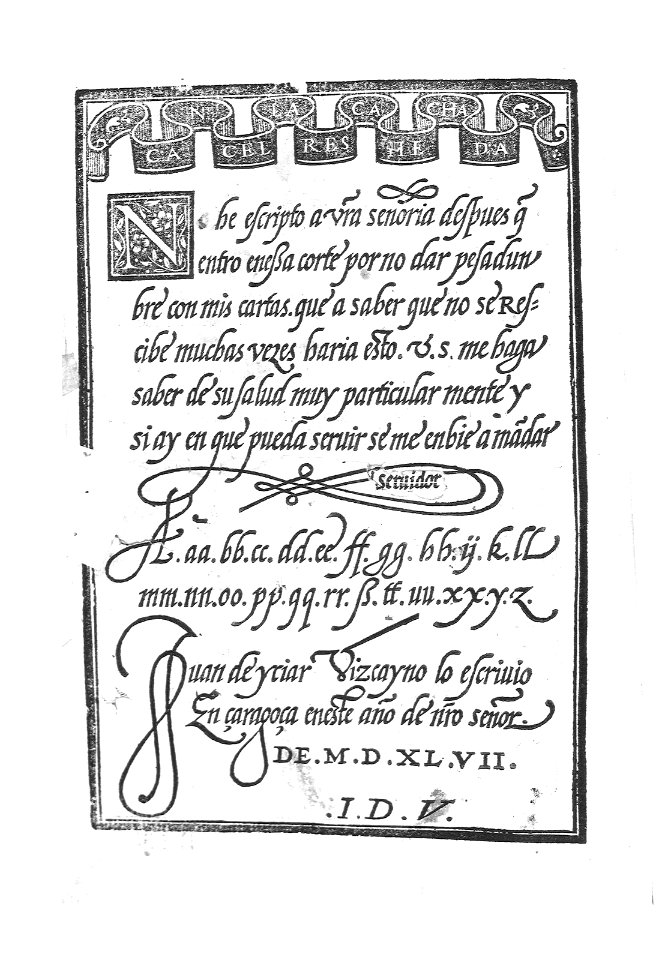 CA N CEL LA RES CA HE CHA DA
No he escripto a vr̃a señoria despues q̃
entro enessa corte por no dar pesadun
bre con mis cartas. que a saber que no se Res-
cibe muchas vezes haria esto. v. s. me haga
saber de su salud muy particular mente y
si ay en que pueda seruir se me enbie a mãdar
seruidor
A. aa. bb. cc. dd. ee. ff. gg. hh. ij. k. ll
mm. nn. oo. pp. qq. rr. ß. tt. uu. x x. y. z.
Juan de yciar Vizcayno lo escriuio
En çaragoça eneste año de nr̃o señor.
DE. M. D. XL. VII.
.I. D. V.